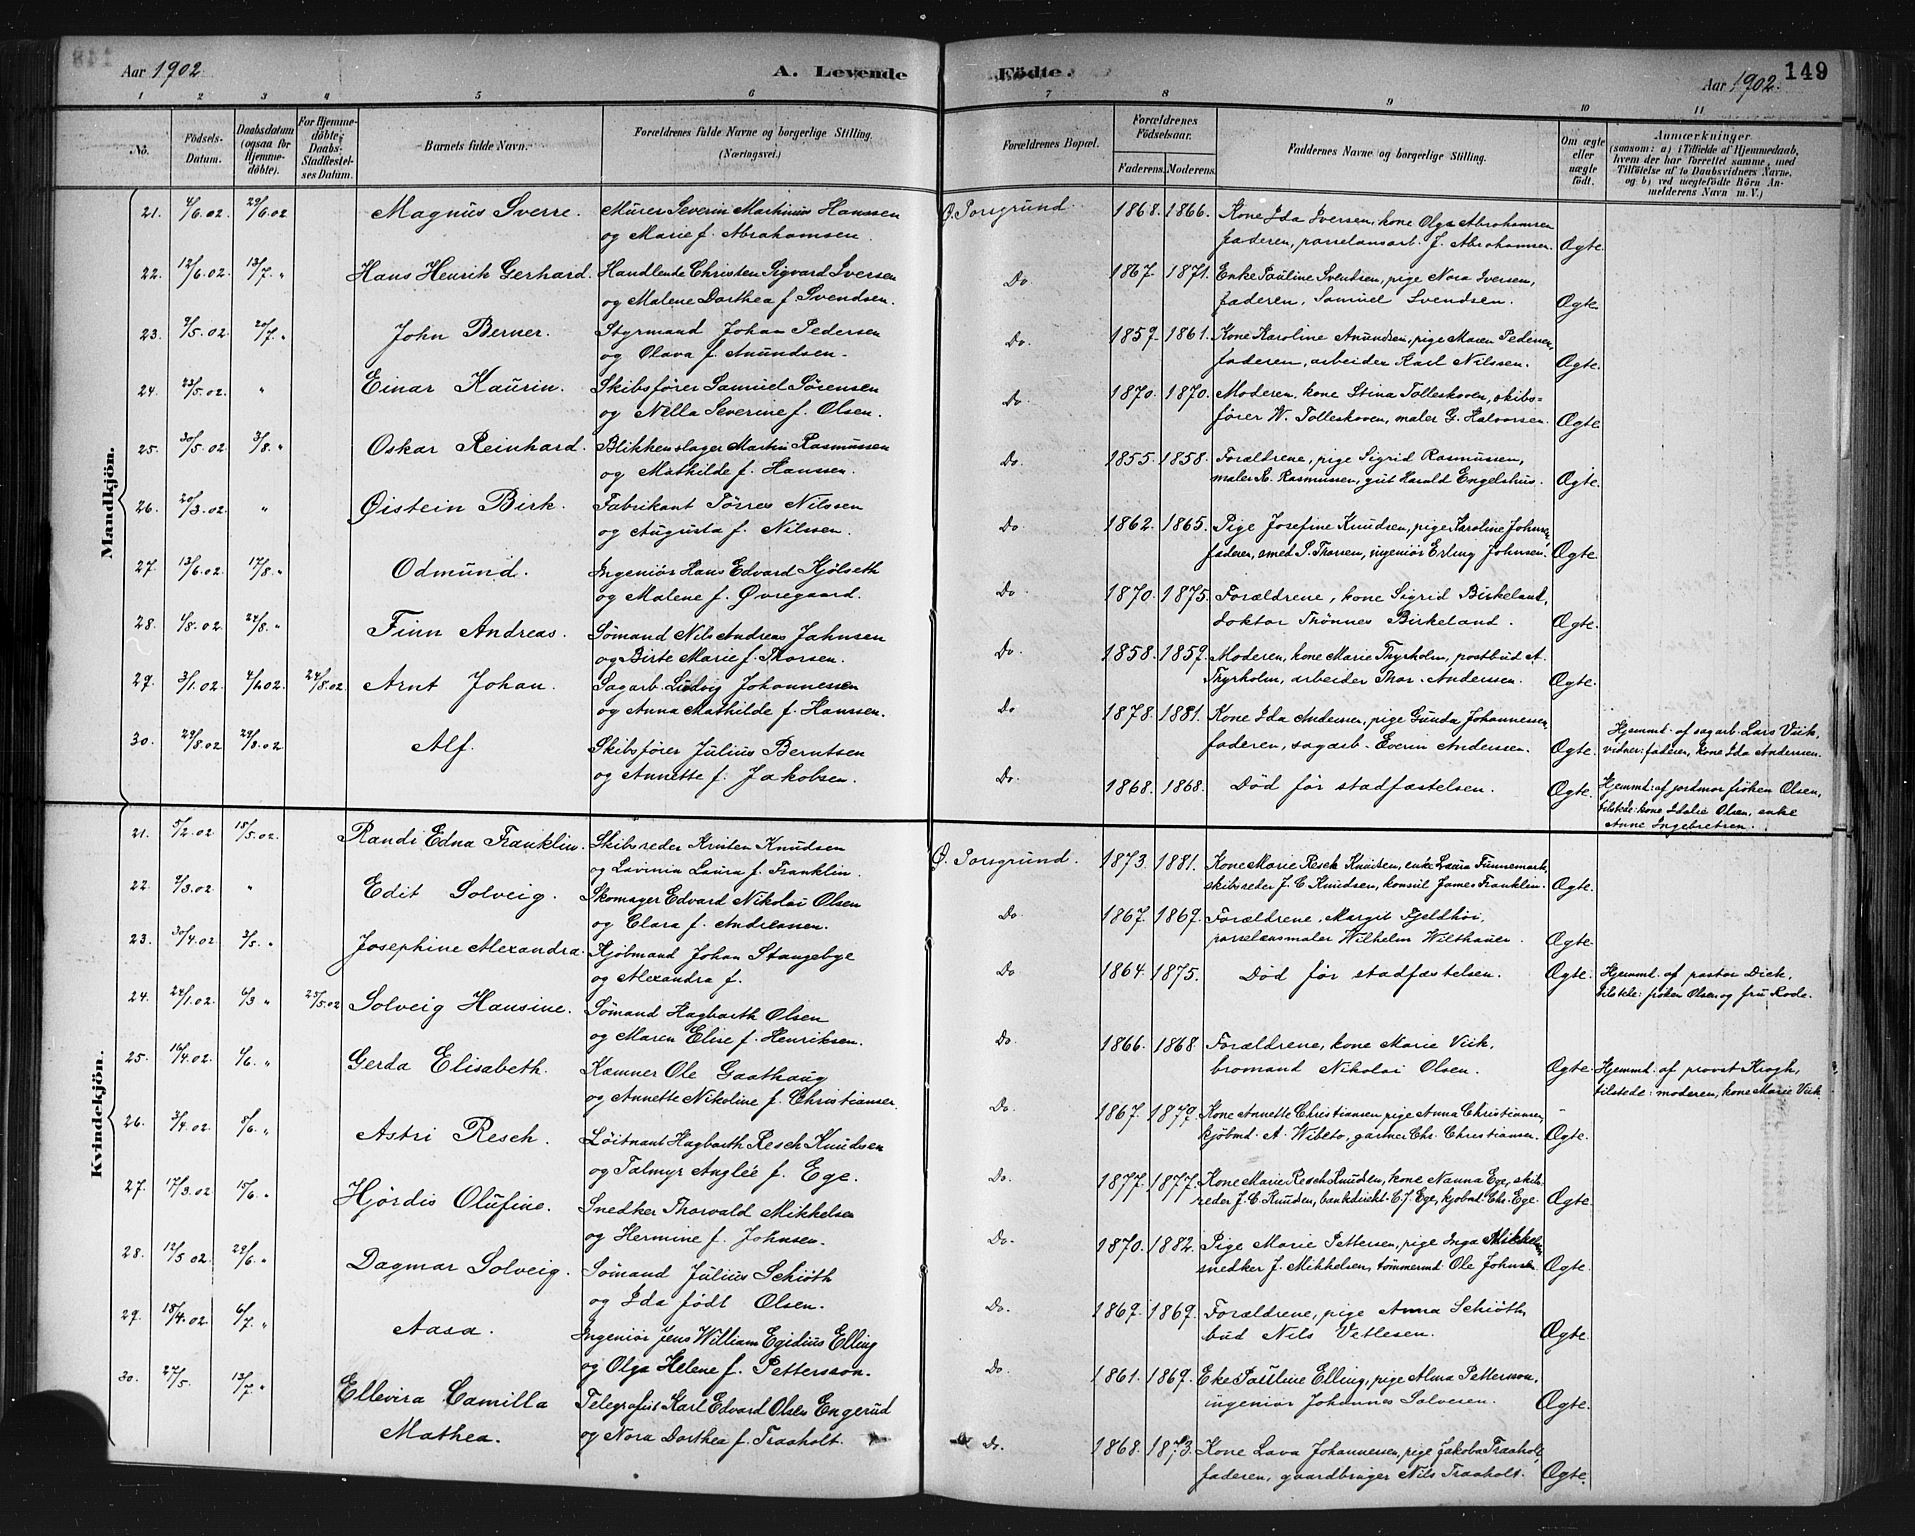 Aar 1902 A. Levende Fødte. Aar 1902. 149
1 2 3 4 5 6 7 8 9 10 11
No.
Fødsels-Datum.
Daabsdatum (ogsaa for Hjemmedøbte).
For Hjemmedøbte; Daabs-Stadfæstelses Datum.
Barnets fulde Navn.
Forældrenes fulde Navne og borgerlige Stilling. (Næringsvei.)
Forældrenes Bopæl.
Forældrenes Fødselsaar.
Faderens. Moderens.
Faddernes Navne og borgerlige Stilling.
Om ægte eller uægte født.
Anmærkninger
(saasom: a) i Tilfælde af Hjemmedaab,
hvem der har forrettet samme, med
Tilføielse af to Daabsvidners Navne,
og b) ved uægtefødte Børn Anmelderens Navn m. V.)
Mandkjön.
21. 4/6.02 29/6.02 Magnus Sverre. Murer Severin Martinius Hanssen Ø. Porsgrund. 1868. 1866. Kone Ida Iversen, kone Olga Abrahamsen
og Marie f. Abrahamsen. faderen, porselansarb. J. Abrahamsen. Ægte.
22. 12/6.02. 13/7 " Hans Henrik Gerhard. Handlende Christen Sigvard Iversen Do 1867. 1871. Enke Pauline Svendsen, pige Nora Iversen,
og Malene Dorthea f. Svendsen. faderen, Samuel Svendsen. Ægte.
23. 9/5.02. 20/7 " John Berner. Styrmand Johan Pedersen Do. 1859. 1861. Kone Karoline Anundsen, pige Maren Pedersen,
og Olava f. Anundsen. faderen, arbeider Karl Nilssen. Ægte.
24. 23/5.02. " Einar Kaurin. Skibsfører Samuel Sørensen Do. 1870. 1870. Moderen, kone Stina Tolleskoven, skibs=
og Nilla Severine f. Olsen. fører W. Tolleskoven, maler G. Halvorsen. Ægte
25. 30/5.02 3/8. " Oskar Reinhard. Blikkenslager Martin Rasmussen Do. 1855. 1858. Forældrene, pige Sigrid Rasmussen,
og Mathilde f. Hansen. maler R. Rasmussen, gut Harald Engelshus. Ægte.
26. 20/3.02 " Øistein Birk. Fabrikant Tørres Nilssen Do. 1862. 1865. Pige Josefine Knudsen, pige Karoline Johnsen,
og Augusta f. Nilssen. faderen, smed P. Thorsen, ingeniør Erling Johnsen. Ægte.
27. 13/6.02 17/8. " Odmund. Ingeniør Hans Edvard Kjølseth Do. 1870. 1875. Forældrene, kone Sigrid Birkeland,
og Malene f. Øvregaard. doktor Thønnes Birkeland. Ægte.
28. 4/8.02. 24/8. " Finn Andreas. Sømand Nils Andreas Jahnsen Do. 1858. 1859. Moderen, kone Marie Thyrholm, postbud A.
og Birte Marie f. Thorsen. Thyrholm, arbeider Thor. Andersen. Ægte.
29. 3/1.02. 4/1.02. 24/8.02 Arnt Johan. Sagarb. Ludvig Johannessen Do 1878. 1881. Kone Ida Andersen, pige Gunda Johannessen, Hjemmd. af sagarb. Lars Viik,
og Anna Mathilde f. Hanssen. faderen, sagarb. Everin Andersen. Ægte. vidner: faderen, kone Ida Andersen.
30. 29/8.02 29/8.02 Alf. Skibsfører Julius Berntsen Do. 1868. 1868. Død før stadfæstelsen. Ægte. Hjemmd: af jordmor frøken Olsen,
og Annette f. Jakobsen. tilstede: kone Idalie Olsen, enke
Anne Ingebretsen.
Kvindekjön.
21. 5/2.02 18/5.02. Randi Edna Franklin. Skibsreder Kristen Knudsen Ø. Porsgrund. 1873. 1881. Kone Marie Resch Knudsen, enke Laura Funnemark,
og Lavinia Laura f. Franklin. skibsreder J. C. Knudsen, konsul James Franklin. Ægte.
22. 9/3.02 " Edit Solveig. Skomager Edvard Nikolai Olsen Do. 1867. 1869. Forældrene, Margit Fjeldhøi,
og Clara f. Andreassen. porselansmaler Wilhelm Wilthauer. Ægte.
23. 30/4.02 3/5. " Josephine Alexandra. Kjøbmand Johan Stangebye Do 1864. 1875. Død før stadfæstelsen. Ægte. Hjemmd. af pastor Dick,
og Alexandra f. tilstede: frøken Olsen og fru Rode.
24. 24/1.02 6/3 " 25/5.02 Solveig Hansine. Sømand Hagbarth Olsen Do. 1866. 1868. Forældrene, kone Marie Viik,
og Maren Elise f. Henriksen. bromand Nikolai Olsen. Ægte. Hjemmd. af provst Krogh,
tilstede: moderen, kone Marie Viik
25. 16/4.02 4/6. " Gerda Elisabeth. Kamner Ole Gaathaug Do. 1867. 1879. Kone Annette Christiansen, pige Anna Christiansen,
og Annette Nikoline f. Christiansen. kjøbmd. A. Wibeto, gartner Chr. Christiansen. Ægte.
26. 3/4.02 8/6. " Astri Resch. Løitnant Hagbarth Resch Knudsen Do. 1877. 1877. Kone Marie Resch Knudsen, kone Nanna Ege, skibs-
og Talmyr Anglée f. Ege. reder J. C. Knudsen, bankdirekt. C. J. Ege, kjøbmd. Chr. Ege. Ægte
27. 17/3.02 15/6. " Hjørdis Olufine. Snedker Thorvald Mikkelsen Do. 1870. 1882. Pige Marie Pettersen, pige Inga Mikkelsen,
og Hermine f. Johnsen. snedker J. Mikkelsen, tømmermd. Ole Johnsen Ægte.
28. 12/5 02 29/6. " Dagmar Solveig. Sømand Julius Schiøth Do. 1869. 1869. Forældrene, pige Anna Schiøth,
og Ida født Olsen. bud Nils Vetlesen. Ægte.
29. 18/4.02. 6/7. " Aasa. Ingeniør Jens William Egidius Elling Do. 1861. 1869. Eke Pauline Elling, pige Alma Pettersson,
og Olga Helene f. Pettersson. ingeniør Johannes Solvesen. Ægte.
30. 27/5. 13/7 " Ellevira Camilla Telegrafist Karl Edvard Olsen Engerud Do. 1868. 1873. Kone Lava Johannessen, pige Jakoba Traaholt,
Mathea. og Nora Dorthea f. Traaholt. faderen, gaardbruger Nils Traaholt. Ægte.